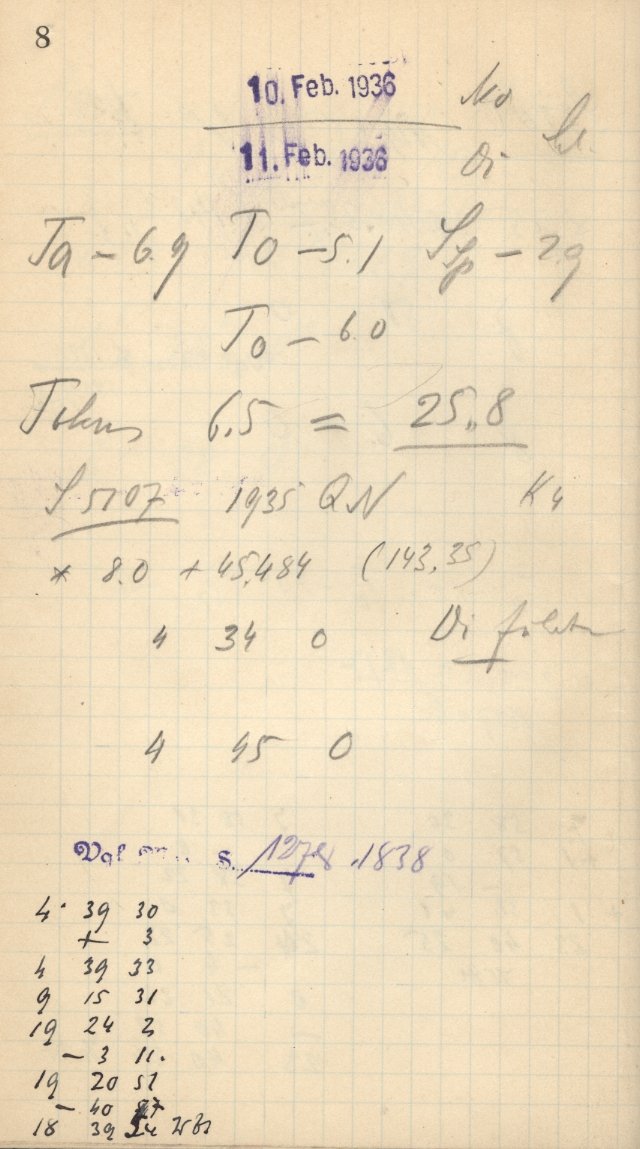 8
10. Feb. 1936 Mo
11. Feb. 1936 Di
Ta - 6.9 To - 5.1 Sp - 7.9
To - 6.0
Fokus 6.5 = 25.8
S 5107 1935 QN K4
* 8.0 + 45.484 (143,35)
4 34 0 Di
4 45 0
Vgl. S. 1278, 1838
4 39 30
+ 3
4 39 33
9 15 31
19 24 2
- 3 11.
19 20 51
- 40 57
18 39 54